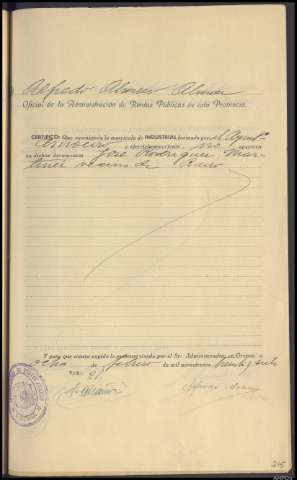 Alfredo Alonso Alonso
Oficial de la Administración de Rentas Públicas de esta Provincia.
CERTIFICO: Que revisada la matrícula de INDUSTRIAL formada por el Ayunt.
o ejercicio corriente no aparece
en dichos documentos José Rodríguez Mar-
tínez vecino de
Y para que conste expido la presente visada por el Sr. Administrador, en Orense, a
ocho de febrero de mil novecientos treinta y seis
V.º B.º
215